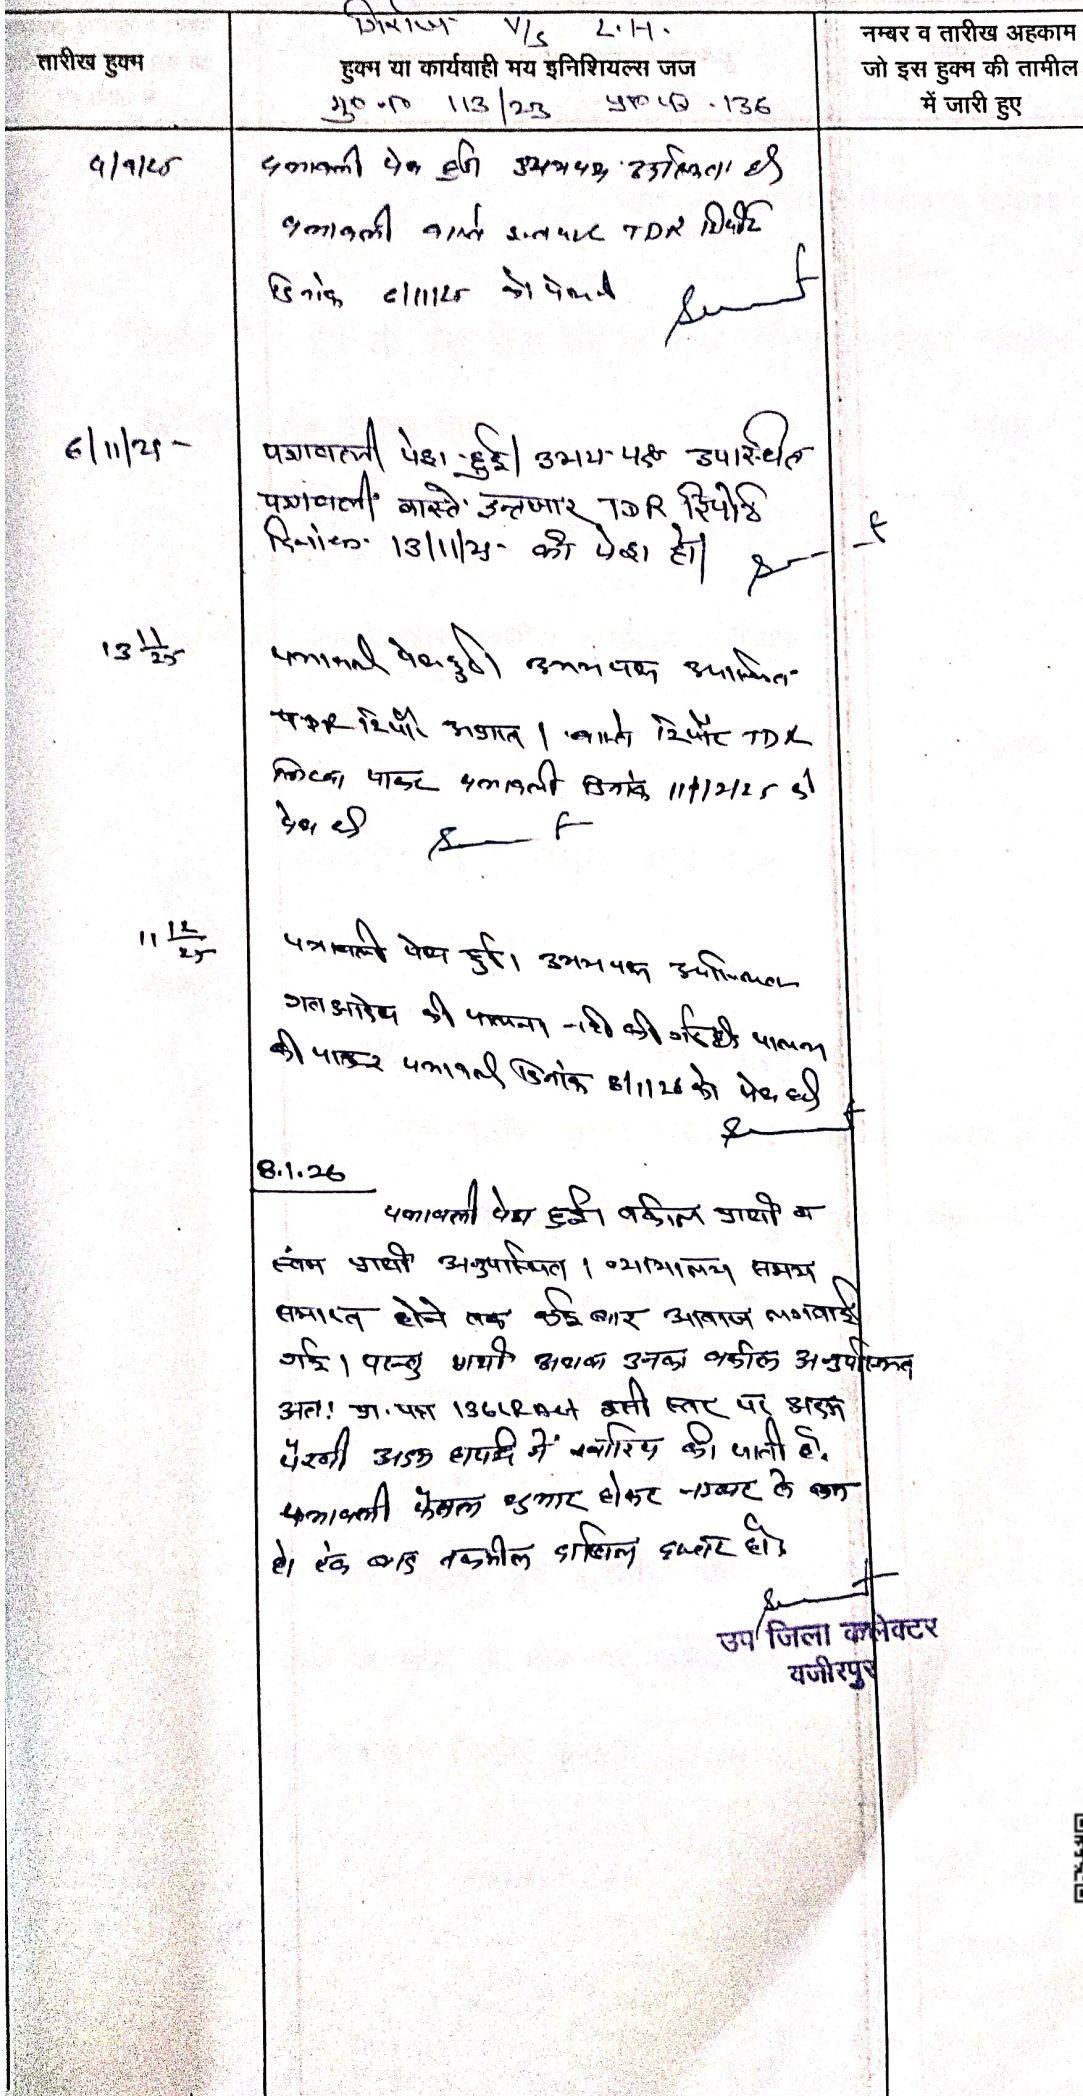 V/S L.H.
तारीख हुक्म
हुक्म या कार्यवाही मय इनिशियल्स जज
नम्बर व तारीख अहकाम
जो इस हुक्म की तामील
में जारी हुए
मु०न० 113/23 136
9/9/25
पत्रावली पेश हुई उभयपक्ष उपस्थित
पत्रावली वास्ते इन्तजार TDR रिपोर्ट
दिनांक 6/11/25 को पेश
6/11/25
पत्रावली पेश हुई। उभय पक्ष उपस्थित
पत्रावली वास्ते इन्तजार TDR रिपोर्ट
दिनांक 13/11/25 को पेश हो।
13 11/25
पत्रावली पेश हुई। उभयपक्ष उपस्थित
TDR रिपोर्ट अप्राप्त। वास्ते रिपोर्ट TDR
पत्रावली दिनांक 11/12/25 को
पेश हो
11 12/25
पत्रावली पेश हुई। उभयपक्ष उपस्थित
गत आदेश की पालना नहीं की गई है पालना
की पत्रावली दिनांक 8/1/26 को पेश हो
8.1.26
पत्रावली पेश हुई। वकील प्रार्थी व
स्वंय प्रार्थी अनुपस्थित। न्यायालय समय
समाप्त होने तक कई बार आवाज लगवाई
गई। परन्तु प्रार्थी अथवा उनका वकील अनुपस्थित
अत: प्रा. पत्र 136 LR Act इसी स्तर पर अदम
पैरवी अदम हाजरी में खारिज की जाती है।
पत्रावली फैसल शुमार होकर नम्बर से कम
हो बाद तकमील दाखिल दफ्तर हो।
उप जिला कलेक्टर
वजीरपुर